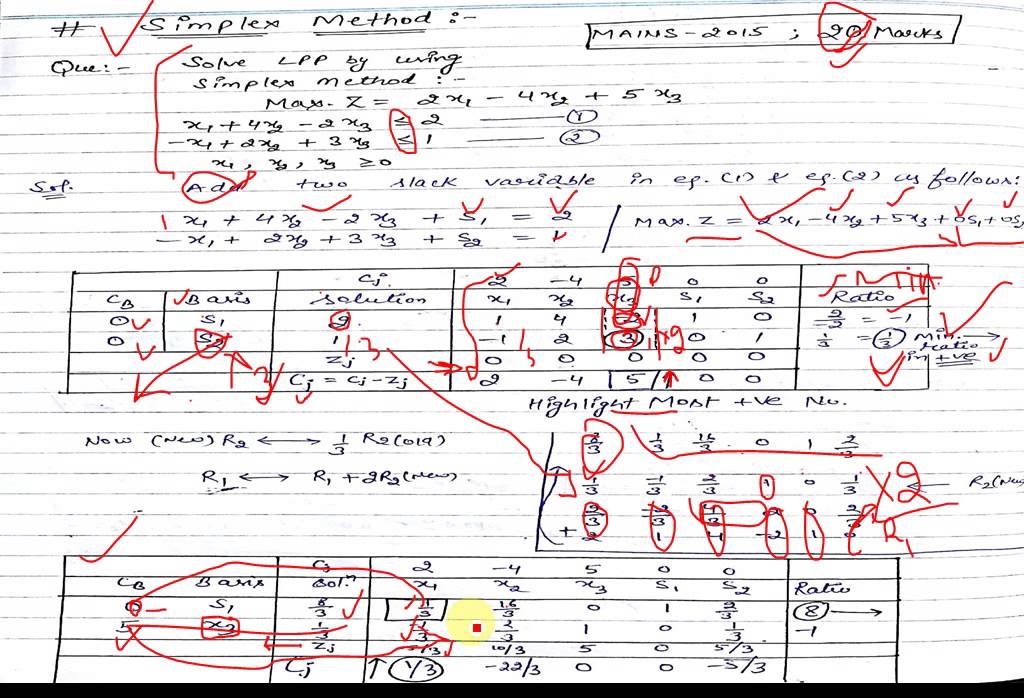 # Simplex Method :-
MAINS-2015 ; 20 Marks
Que:- Solve LPP by using
Simplex Method :-
Max. Z = 2x₁ - 4x₂ + 5x₃
x₁ + 4x₂ - 2x₃ ≤ 2 ——— ①
-x₁ + 2x₂ + 3x₃ ≤ 1 ——— ②
x₁, x₂, x₃ ≥ 0
Sol. Add two slack variable in eq.(1) & eq.(2) as follows:
1x₁ + 4x₂ - 2x₃ + S₁ = 2
-x₁ + 2x₂ + 3x₃ + S₂ = 1
Max. Z = 2x₁ - 4x₂ + 5x₃ + 0S₁ + 0S₂
Cj 2 -4 5 0 0 Min
C_B Basis Solution x₁ x₂ x₃ S₁ S₂ Ratio
0 S₁ 2 1 4 -2 1 0 2/-2 = -1
0 S₂ 1 -1 2 3 0 1 1/3 = 1/3 Min. ratio in +ve
Zj 0 0 0 0 0
Cj = Cj - Zj 2 -4 5 ↑ 0 0
Highlight Most +ve No.
Now (New) R₂ ⟷ 1/3 R₂(old)
R₁ ⟷ R₁ + 2R₂(New)
8/3 1/3 16/3 0 1 2/3
1/3 -1/3 2/3 1 0 1/3 ×2 ← R₂(New)
2/3 -2/3 4/3 2 0 2/3
+ 2 1 4 -2 1 0 R₁
Cj 2 -4 5 0 0
C_B Basis Solⁿ x₁ x₂ x₃ S₁ S₂ Ratio
0 S₁ 8/3 1/3 16/3 0 1 2/3 8 →
5 x₃ 1/3 -1/3 2/3 1 0 1/3 -1
Zj -5/3 10/3 5 0 5/3
Cj ↑ 11/3 -22/3 0 0 -5/3